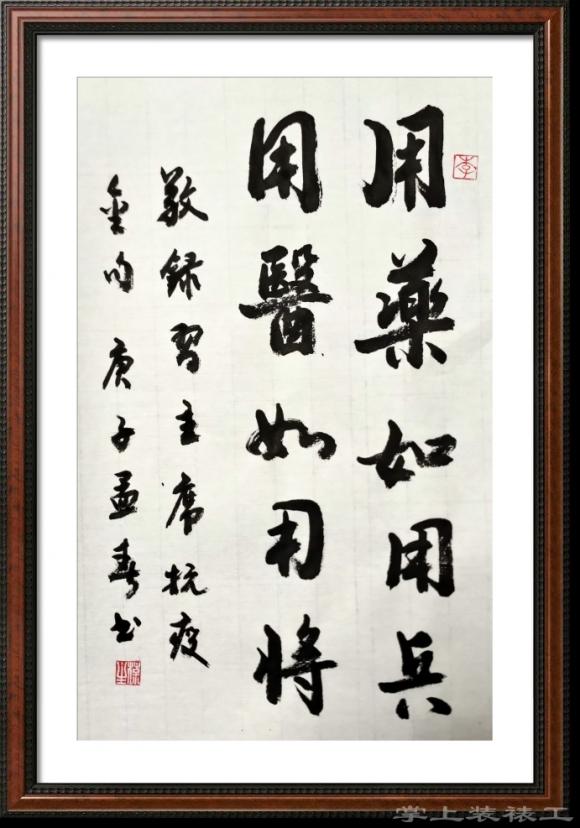 用藥如用兵
用醫如用將
敬録習主席抗疫
金句 庚子孟春书
李
掌上装裱工